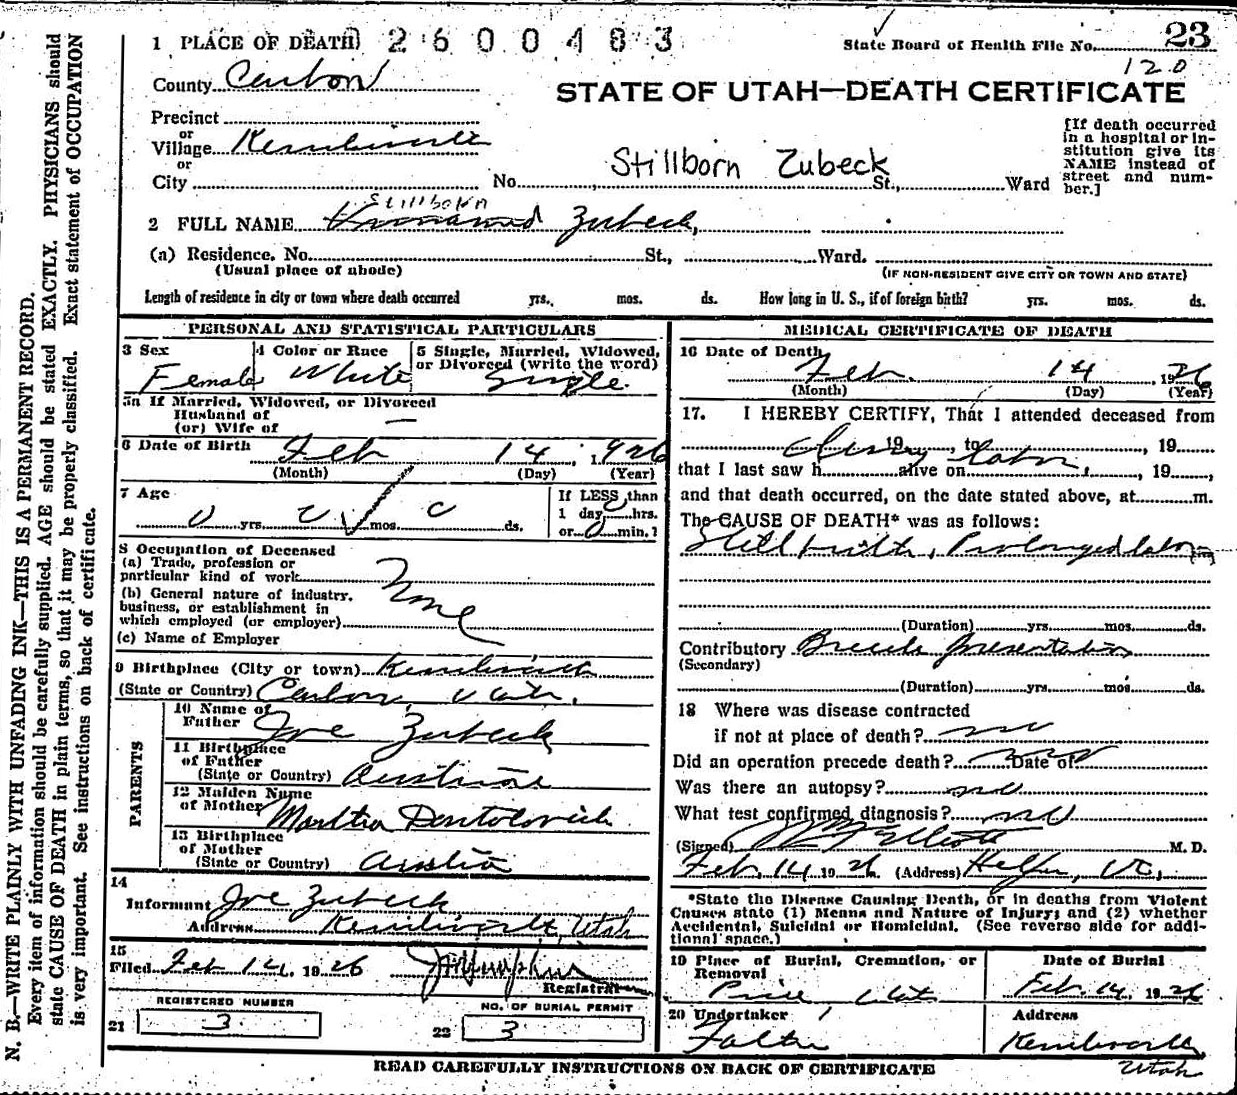 1 PLACE OF DEATH 2600483
State Board of Health File No. 23
120
County Carbon
STATE OF UTAH—DEATH CERTIFICATE
Precinct
or
Village Kenilworth
or
City No. St., Ward
Stillborn Zubeck
[If death occurred in a hospital or institution give its NAME instead of street and number.]
Stillborn
2 FULL NAME Unnamed Zubeck,
(a) Residence. No. St., Ward.
(Usual place of abode) (IF NON-RESIDENT GIVE CITY OR TOWN AND STATE)
Length of residence in city or town where death occurred yrs. mos. ds. How long in U. S., if of foreign birth? yrs. mos. ds.
PERSONAL AND STATISTICAL PARTICULARS
3 Sex Female
4 Color or Race White
5 Single, Married, Widowed, or Divorced (write the word) Single.
5a If Married, Widowed, or Divorced
Husband of
(or) Wife of —
6 Date of Birth Feb 14, 1926
(Month) (Day) (Year)
7 Age 0 yrs. 0 mos. 0 ds.
If LESS than 1 day 0 hrs. or 0 min.?
8 Occupation of Deceased
(a) Trade, profession or particular kind of work
(b) General nature of industry, business, or establishment in which employed (or employer)
None
(c) Name of Employer
9 Birthplace (City or town) Kenilworth
(State or Country) Carbon, Utah.
PARENTS
10 Name of Father Joe Zubeck
11 Birthplace of Father (State or Country) Austria
12 Maiden Name of Mother Martha
13 Birthplace of Mother (State or Country) Austria
14
Informant Joe Zubeck
Address Kenilworth, Utah
15
Filed Feb 14, 1926
Registrar
REGISTERED NUMBER
21 3
NO. OF BURIAL PERMIT
22 3
MEDICAL CERTIFICATE OF DEATH
16 Date of Death Feb. 14 1926
(Month) (Day) (Year)
17. I HEREBY CERTIFY, That I attended deceased from
During 19 to labor, 19
that I last saw h alive on , 19 ,
and that death occurred, on the date stated above, at m.
The CAUSE OF DEATH* was as follows:
Still birth, Prolonged labor
(Duration) yrs. mos. ds.
Contributory Breech presentation
(Secondary)
(Duration) yrs. mos. ds.
18 Where was disease contracted
if not at place of death? no
Did an operation precede death? no Date of
Was there an autopsy? no
What test confirmed diagnosis? no
(Signed) M. D.
Feb. 14 1926 (Address) Helper, Ut.
*State the Disease Causing Death, or in deaths from Violent Causes state (1) Means and Nature of Injury; and (2) whether Accidental, Suicidal or Homicidal. (See reverse side for additional space.)
19 Place of Burial, Cremation, or Removal
Price Utah
Date of Burial
Feb. 14, 1926
20 Undertaker
Address
Kenilworth
Utah
READ CAREFULLY INSTRUCTIONS ON BACK OF CERTIFICATE
N. B.—WRITE PLAINLY WITH UNFADING INK—THIS IS A PERMANENT RECORD.
Every item of information should be carefully supplied. AGE should be stated EXACTLY. PHYSICIANS should
state CAUSE OF DEATH in plain terms, so that it may be properly classified. Exact statement of OCCUPATION
is very important. See instructions on back of certificate.